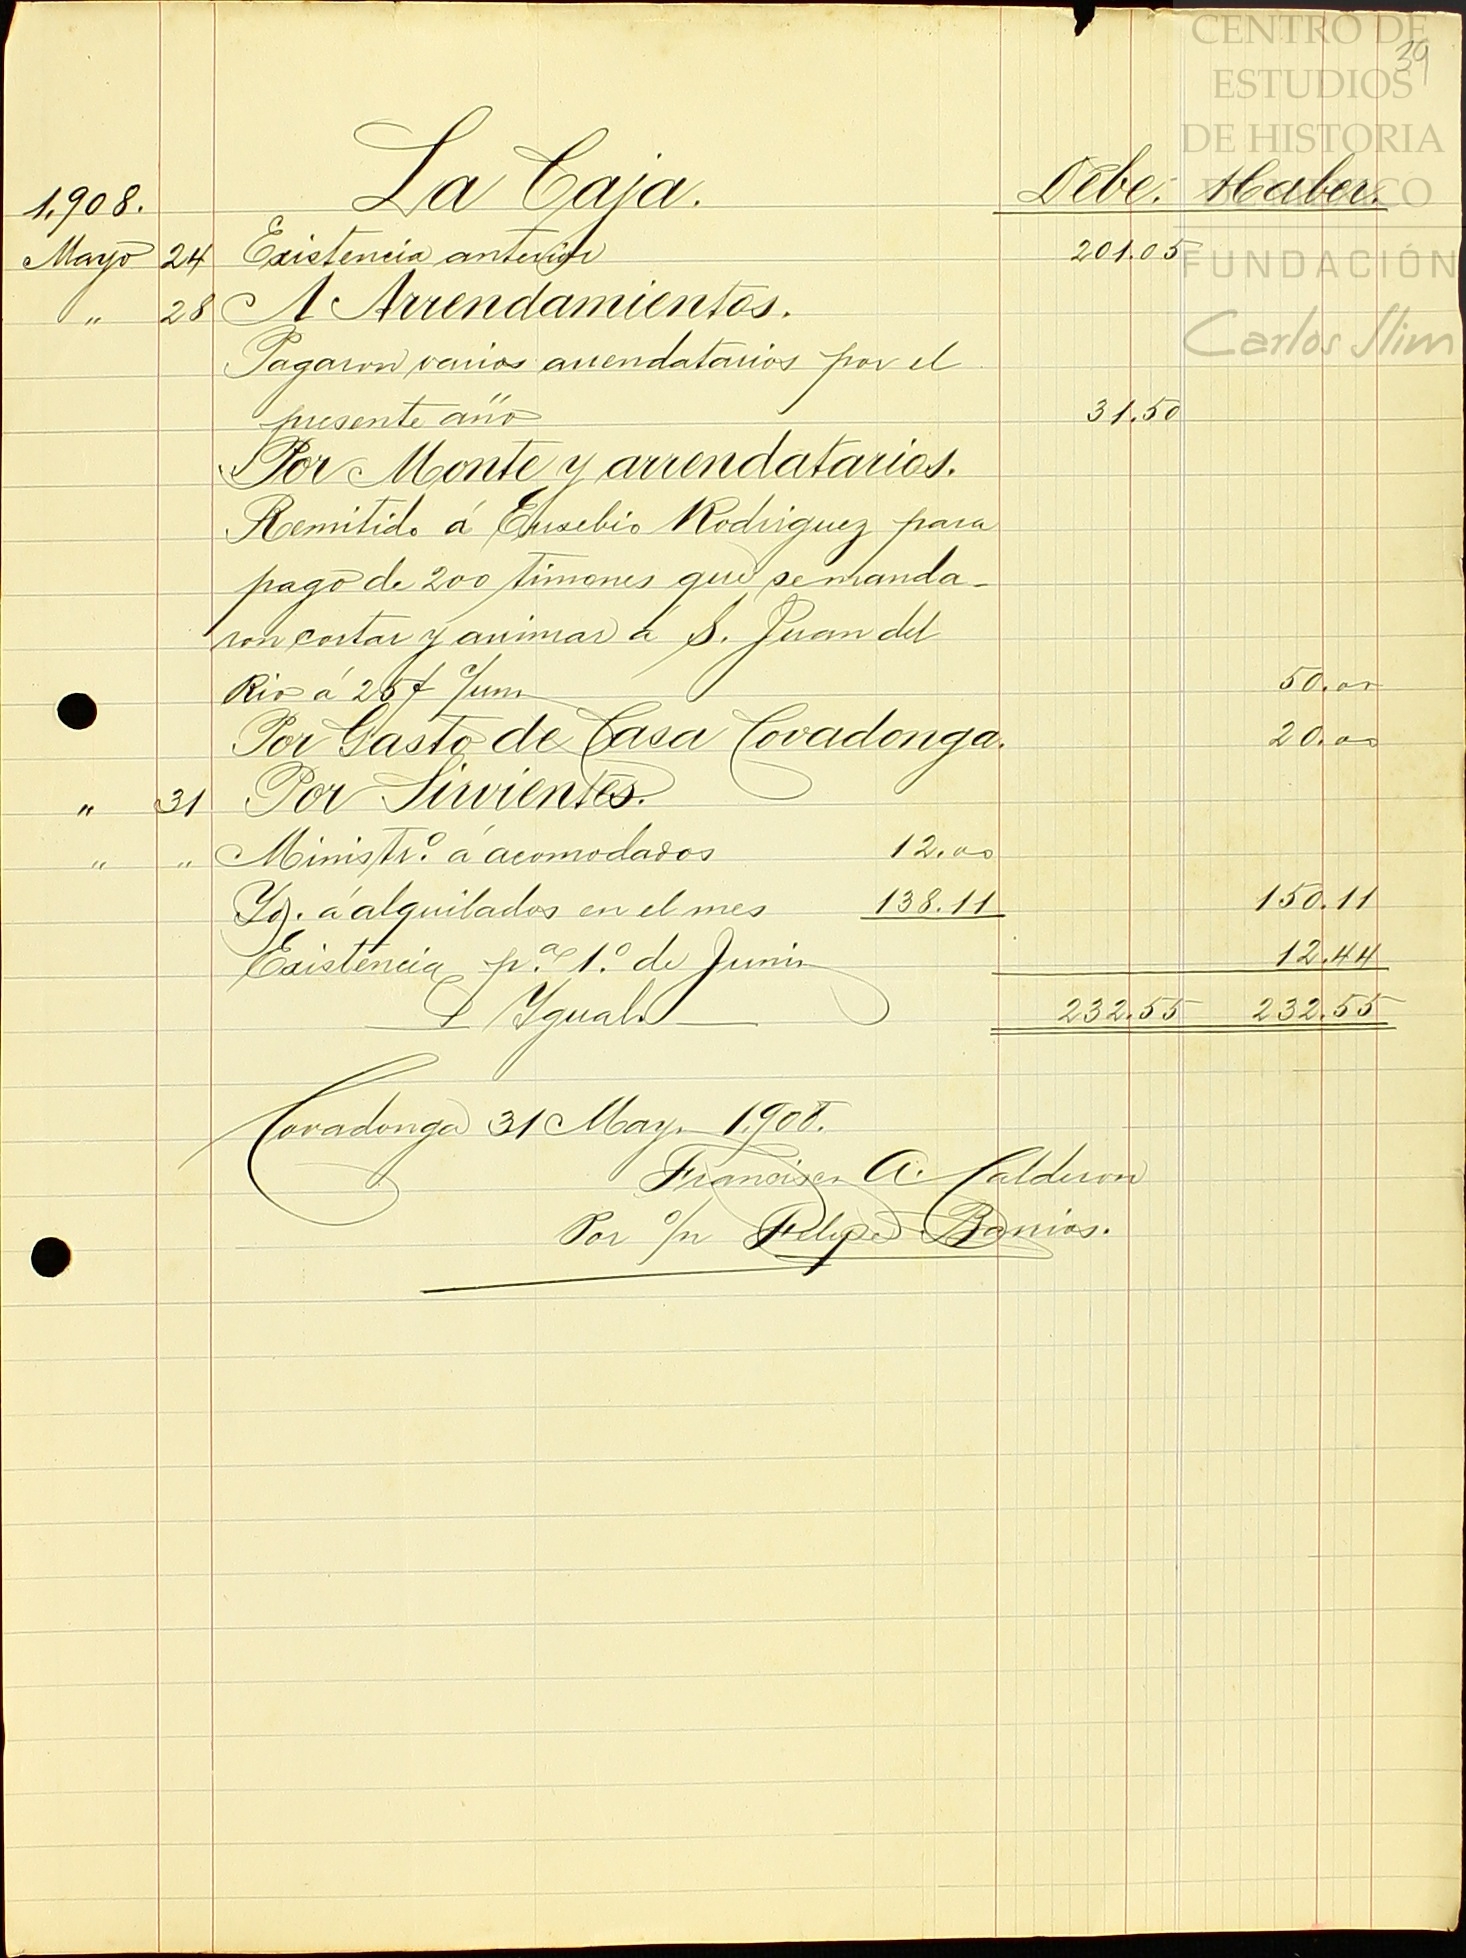 CENTRO DE
ESTUDIOS
DE HISTORIA
DE MÉXICO
FUNDACIÓN
Carlos Slim
39
1,908. La Caja. Debe. Haber.
Mayo 24 Existencia anterior 201.05
" 28 A Arrendamientos.
Pagaron varios arrendatarios por el
presente año 31.50
Por Monte y arrendatarios.
Remitido á Eusebio Rodriguez para
pago de 200 timones que se manda-
ron cortar y arrimar á S. Juan del
Rio á 25¢ c/uno 50.00
Por Gasto de Casa Covadonga. 20.00
" 31 Por Sirvientes.
" " Ministr.º á acomodados 12.00
Yd. á alquilados en el mes 138.11 150.11
Existencia p.ª 1.º de Junio 12.44
Ygual. 232.55 232.55
Covadonga 31 Mayo 1,908.
Francisco A. Calderon
Por o/n Felipe Barrios.